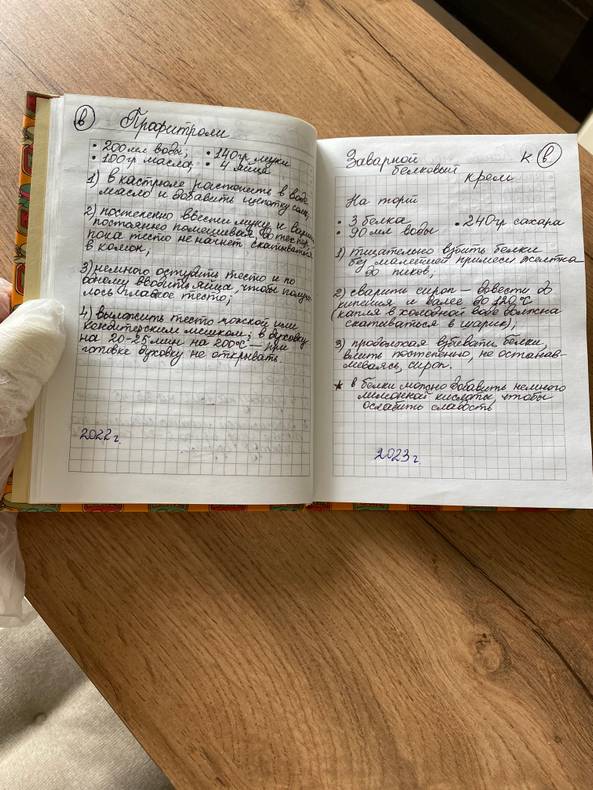 в
Профитроли
• 200мл воды; • 140гр муки
• 100гр масла; • 4 яйца
1) в кастрюле растопить в воде
масло и добавить щепотку соли
2) постепенно ввести муку и варить,
постоянно помешивая до тех пор,
пока тесто не начнет скатываться
в комок;
3) немного остудить тесто и по
одному вводить яйца, чтобы получи-
лось гладкое тесто;
4) выложить тесто ложкой или
кондитерским мешком; в духовку
на 20-25 мин на 200°С, при
готовке духовку не открывать
2022 г.
Заварной
белковый
крем
К в
На торт
• 3 белка • 240гр сахара
• 90мл воды
1) тщательно взбить белки
без малейшей примеси желтка
до пиков;
2) сварить сироп – довести до
кипения и далее до 120°С
(капля в холодной воде должна
скатываться в шарик),
3) продолжая взбивать белки,
влить постепенно, не останав-
ливаясь, сироп.
★ в белки можно добавить немного
лимонной кислоты, чтобы
ослабить сладость
2023 г.